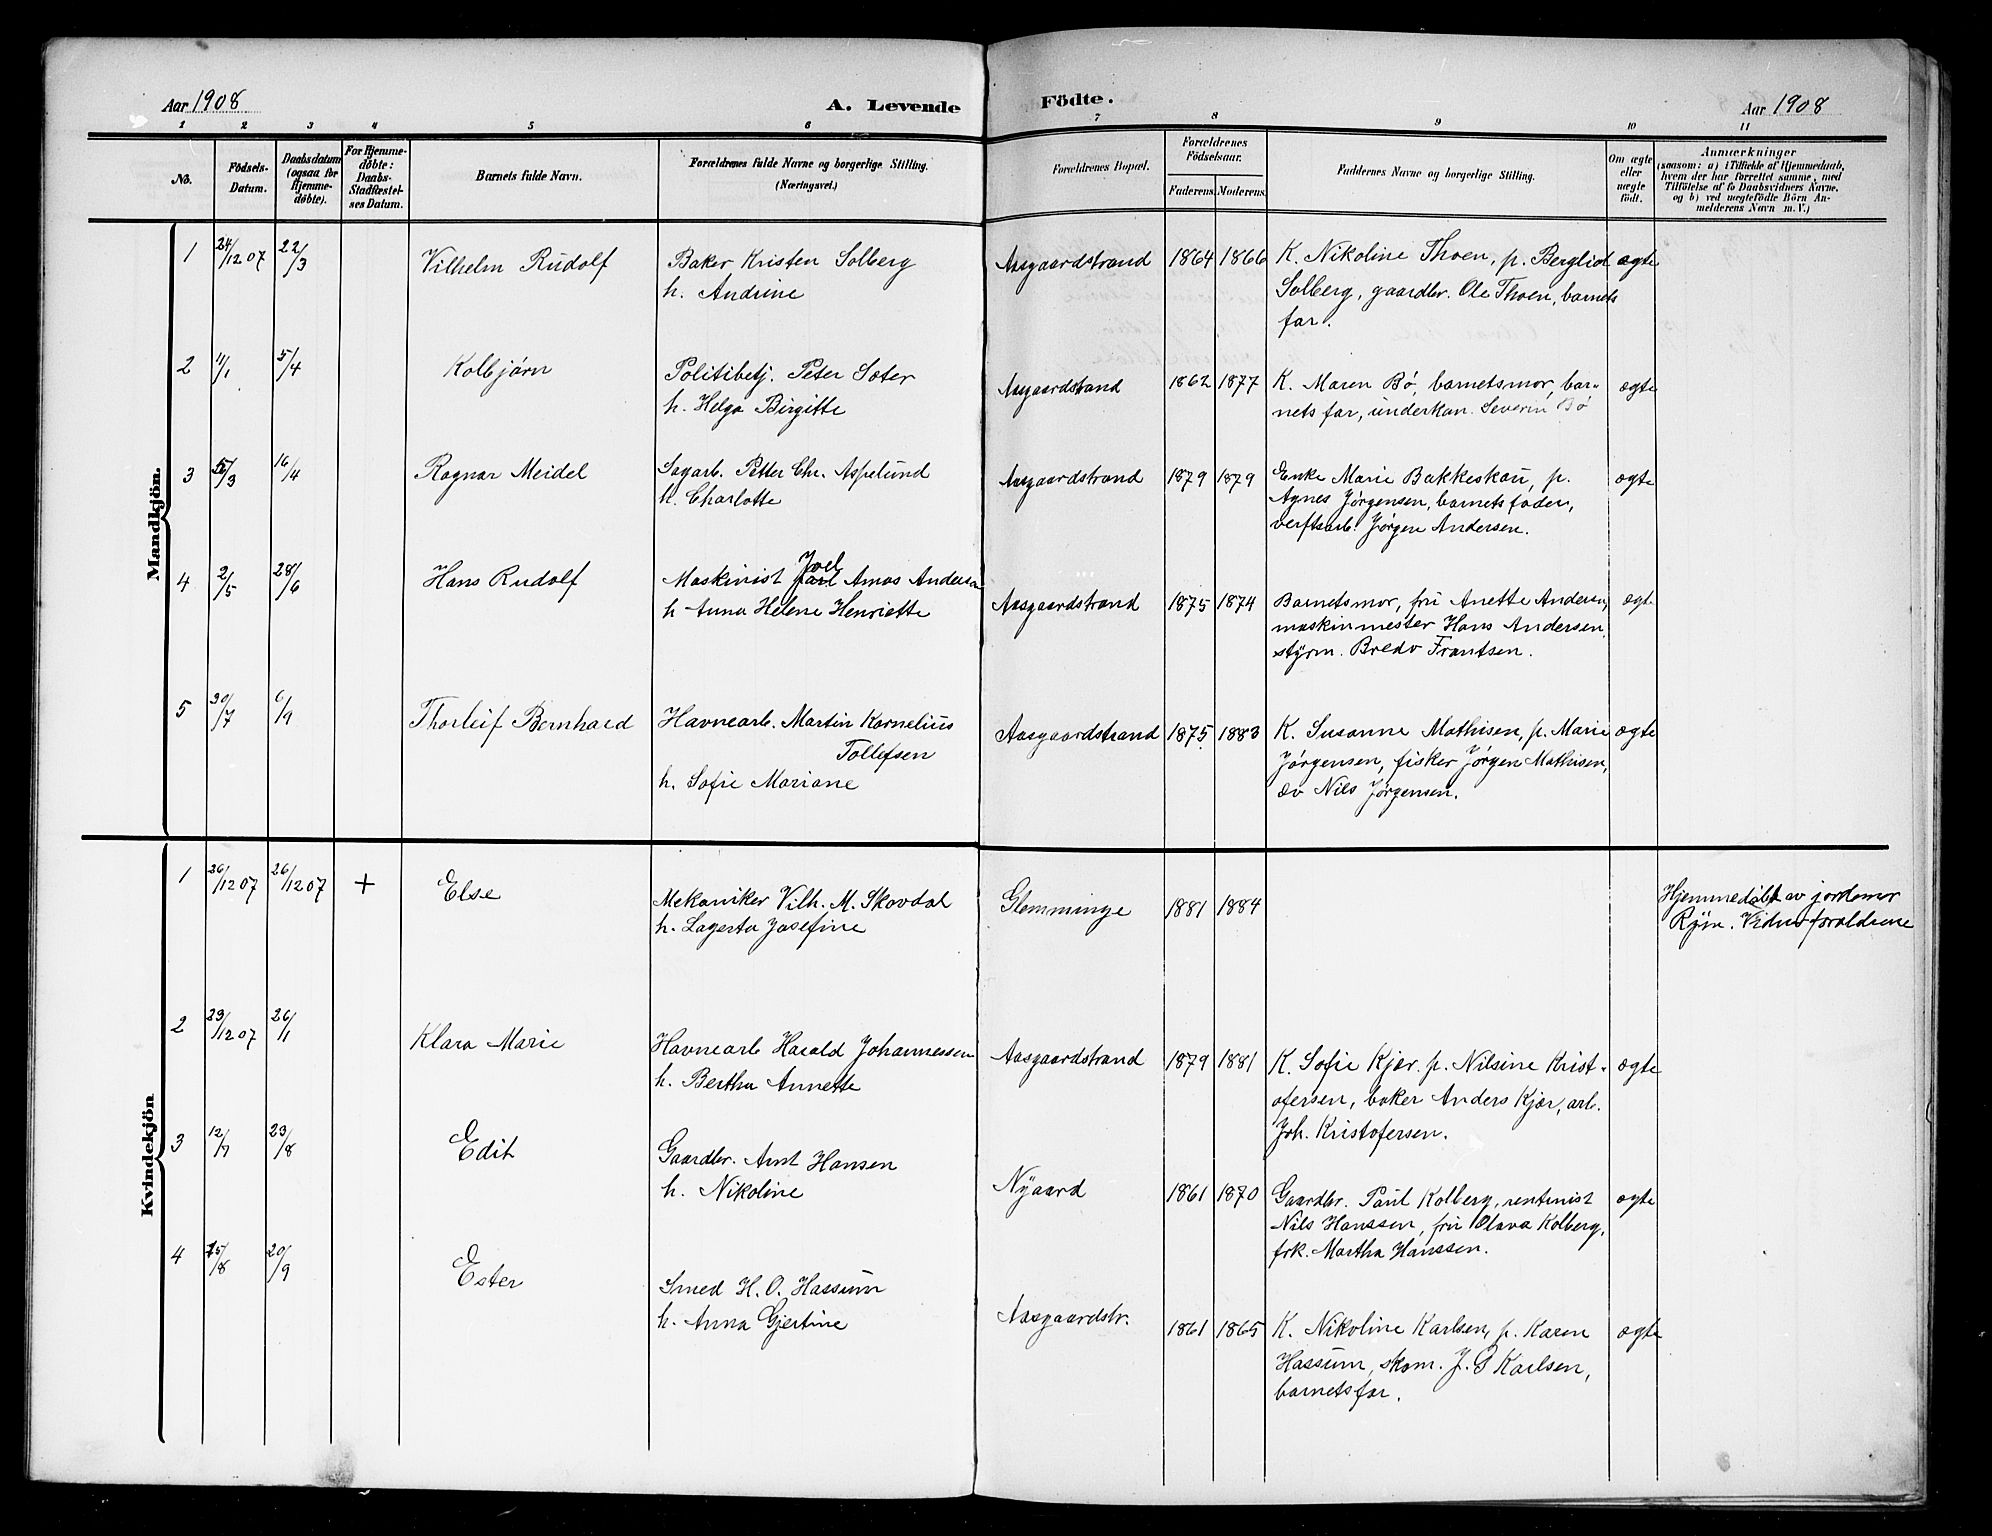 Aar 1908 A. Levende Födte. Aar 1908
1 2 3 4 5 6 7 8 9 10 11
No. Födsels-Datum. Daabsdatum (ogsaa for Hjemme-döbte). For Hjemme-döbte: Daabs-Stadfæstel-ses Datum. Barnets fulde Navn. Forældrenes fulde Navne og borgerlige Stilling. (Næringsvei.) Forældrenes Bopæl. Forældrenes Födselsaar. Faderens. Moderens. Faddernes Navne og borgerlige Stilling. Om ægte eller uægte födt. Anmærkninger
(saasom: a) i Tilfælde af Hjemmedaab,
hvem der har forrettet samme, med
Tilföielse af to Daabsvidners Navne.
og b) ved uægtefödte Börn An-
melderens Navn m. V.)
Mandkjön.
1 24/12 07 22/3 Vilhelm Rudolf Baker Kristen Solberg Aasgaardstrand 1864 1866 K. Nikoline Thoen, p. Bergliot ægte
h. Andrine Solberg, gaardbr. Ole Thoen, barnets
far.
2 11/1 5/4 Kolbjørn Politibetj. Peter Sæter Aasgaardstrand 1862 1877 K. Maren Bø, barnets mor, bar-
ægte
h. Helga Birgitte nets far, underkan. Severin Bø
3 /3 16/4 Ragnar Meidel Sagarb. Petter Chr. Aspelund Aasgaardstrand 1879 1879 Enke Marie Bakkeskau, p. ægte
h. Charlotte Agnes Jørgensen, barnets fader,
verftsarb. Jørgen Andersen.
4 2/5 28/6 Hans Rudolf Maskinist Joel Amos Andersen Aasgaardstrand 1875 1874 Barnets mor, fru Anette Andersen, ægte
h. Anna Helene Henriette maskinmester Hans Andersen,
styrm. Bredo Frantsen.
5 30/7 6/9 Thorleif Bernhard Havnearb. Martin Kornelius Aasgaardstrand 1875 1883 K. Susanne Mathisen, p. Marie ægte
Tollefsen Jørgensen, fisker Jørgen Mathisen,
h. Sofie Mariane æv Nils Jørgensen.
Kvindekjön
1 26/12 07 26/12 07 + Else Mekaniker Vilh. M. Skovdal Glemminge 1881 1884 Hjemmedøbt av jordemor
h. Lagerta Josefine Ryin. Vidner forældrene
2 29/12 07 26/1 Klara Marie Havnearb Harald Johannessen Aasgaardstrand 1879 1881 K. Sofie Kjær. p. Nilsine Krist- ægte
h. Bertha Annette ofersen, baker Anders Kjær, arb.
Joh. Kristofersen.
3 12/7 23/8 Edit Gaardbr. Arnt Hansen Nygaard 1861 1870 Gaardbr. Paul Kolberg, rentenist ægte
h. Nikoline Nils Hanssen, fru Olava Kolberg,
frk. Martha Hanssen.
4 15/8 20/9 Ester Smed H. O. Hassum Aasgaardstr. 1861 1865 K. Nikoline Karlsen, p. Karen ægte
h. Anna Gjertine Hassum, skom. J. G Karlsen,
barnets far.